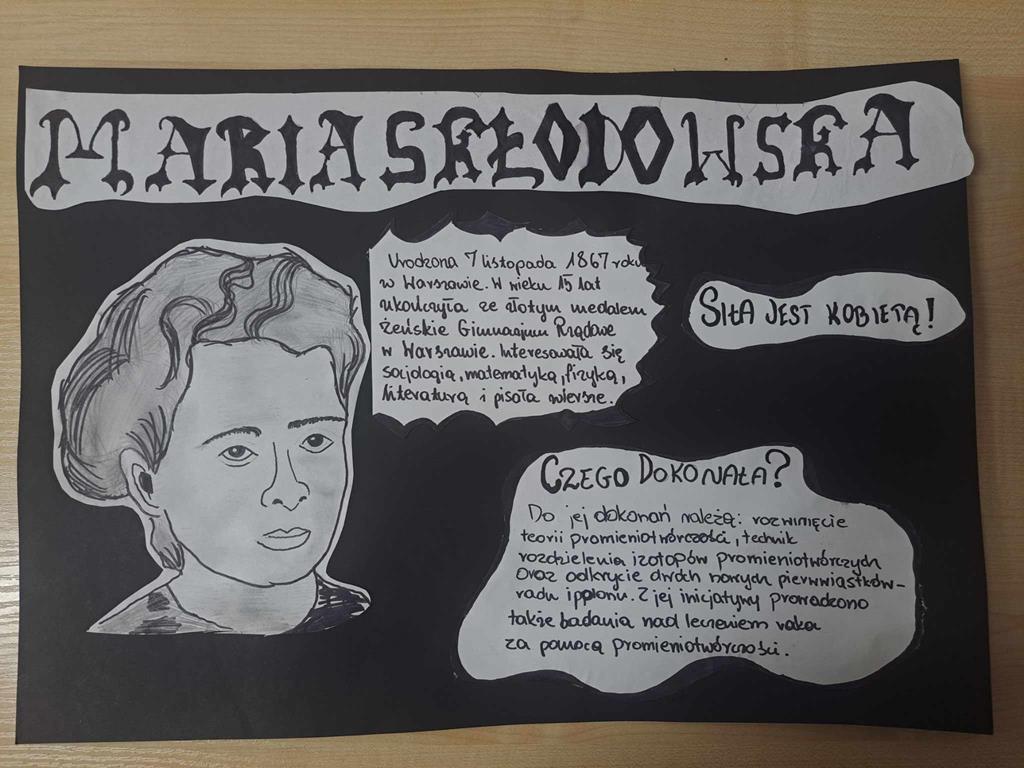 MARIA SKŁODOWSKA
Urodzona 7 listopada 1867 roku
w Warszawie. W wieku 15 lat
ukończyła ze złotym medalem
Żeńskie Gimnazjum Rządowe
w Warszawie. Interesowała się
socjologią, matematyką, fizyką,
literaturą i pisała wiersze.
SIŁA JEST KOBIETĄ!
CZEGO DOKONAŁA?
Do jej dokonań należą: rozwinięcie
teorii promieniotwórczości, technik
rozdzielenia izotopów promieniotwórczych
oraz odkrycie dwóch nowych pierwwiąstków-
radu i polonu. Z jej inicjatywy prowadzono
także badania nad leczeniem raka
za pomocą promieniotwórczości.